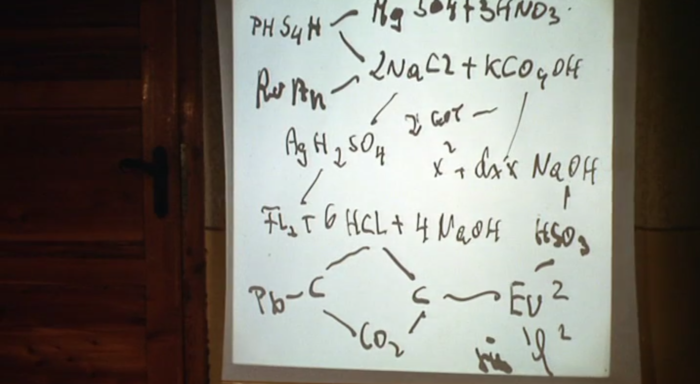 PHS4H Mg SO4+3HNO3
2NaCl2+KCO4OH
AgH2SO4
x²+dx·x NaOH
6 HCL+4 NaOH HSO3
Pb-C C EU²
CO2